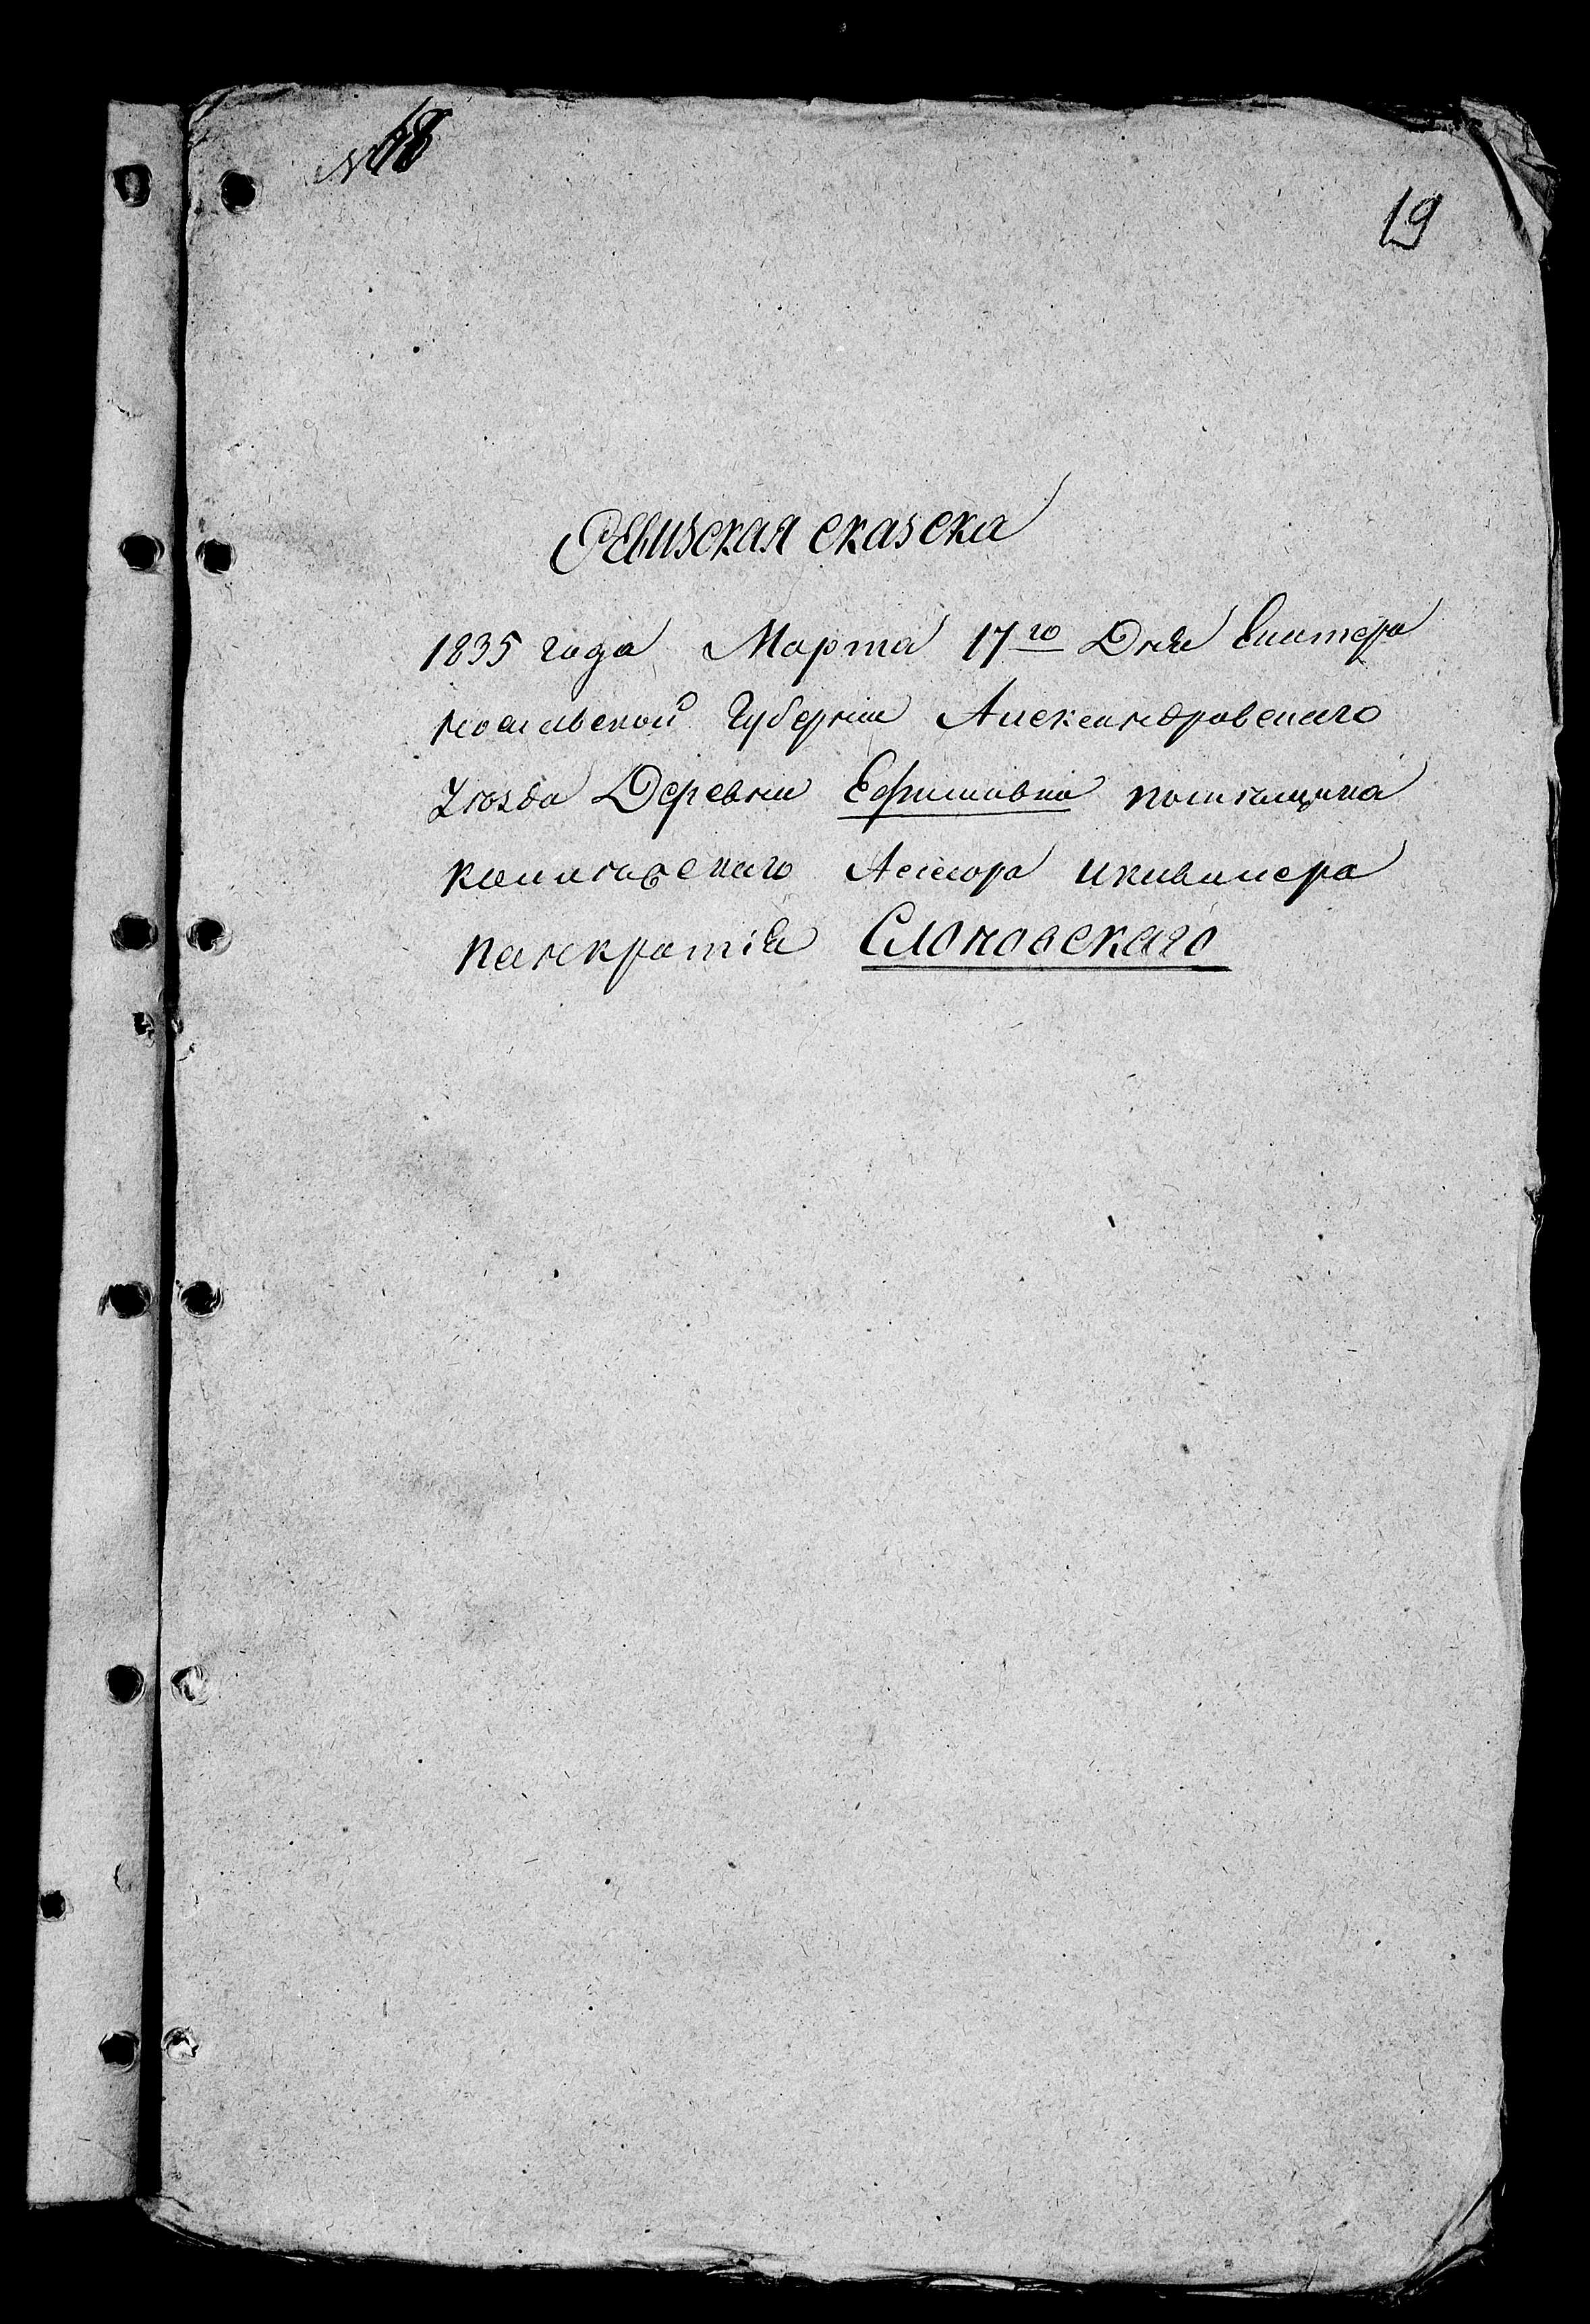 № 18
19
Ревизская сказска
1835 года Марта 17го Дня Екатера
нославской Губернии Александровскаго
Уезда Деревни Ефимавка помещика
каллежскаго Асесора и кавалера
панкратия Слоновскаго